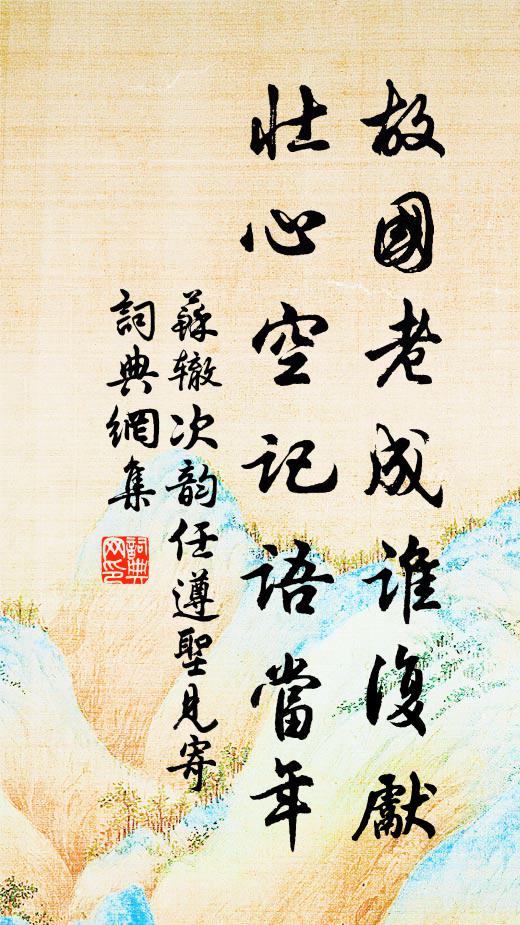 故國老成誰復獻
壯心空記語當年
蘇辙次韵任遵聖見寄
詞典網集
詞典网印